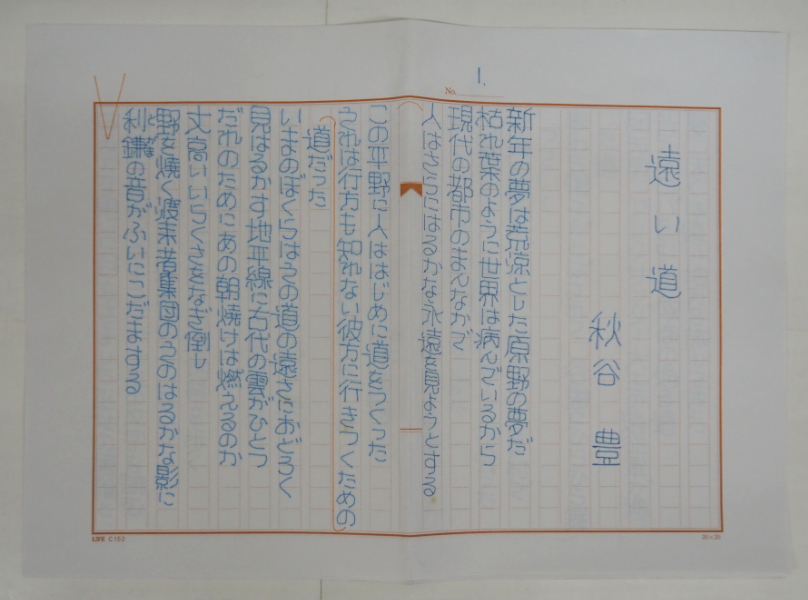 No. 1.
遠い道
秋谷 豊
新年の夢は荒涼とした原野の夢だ
枯れ葉のように世界は病んでいるから
現代の都市のまんなかで
人はさらにはるかな永遠を見ようとする
この平野に人ははじめに道をつくった
それは行方も知れない彼方に行きつくための
道だった
いまのぼくらはその道の遠さにおどろく
見はるかす地平線に古代の雲がひとつ
だれのためにあの朝焼けは燃えるのか
丈高いいらくさをなぎ倒し
野を焼く渡来者集団のそのはるかな影に
利鎌の音がふいにこだまする
LIFE C152
20×20